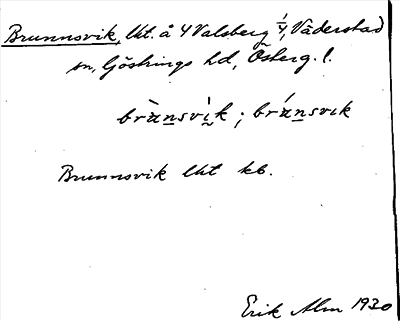 Brunnsvik, lht. å 4 Valsberg 1/4, Väderstad
sn, Göstrings hd, Österg. l.
brànsvìk ; bránsvık
Brunnsvik lht kb.
Erik Alm 1930